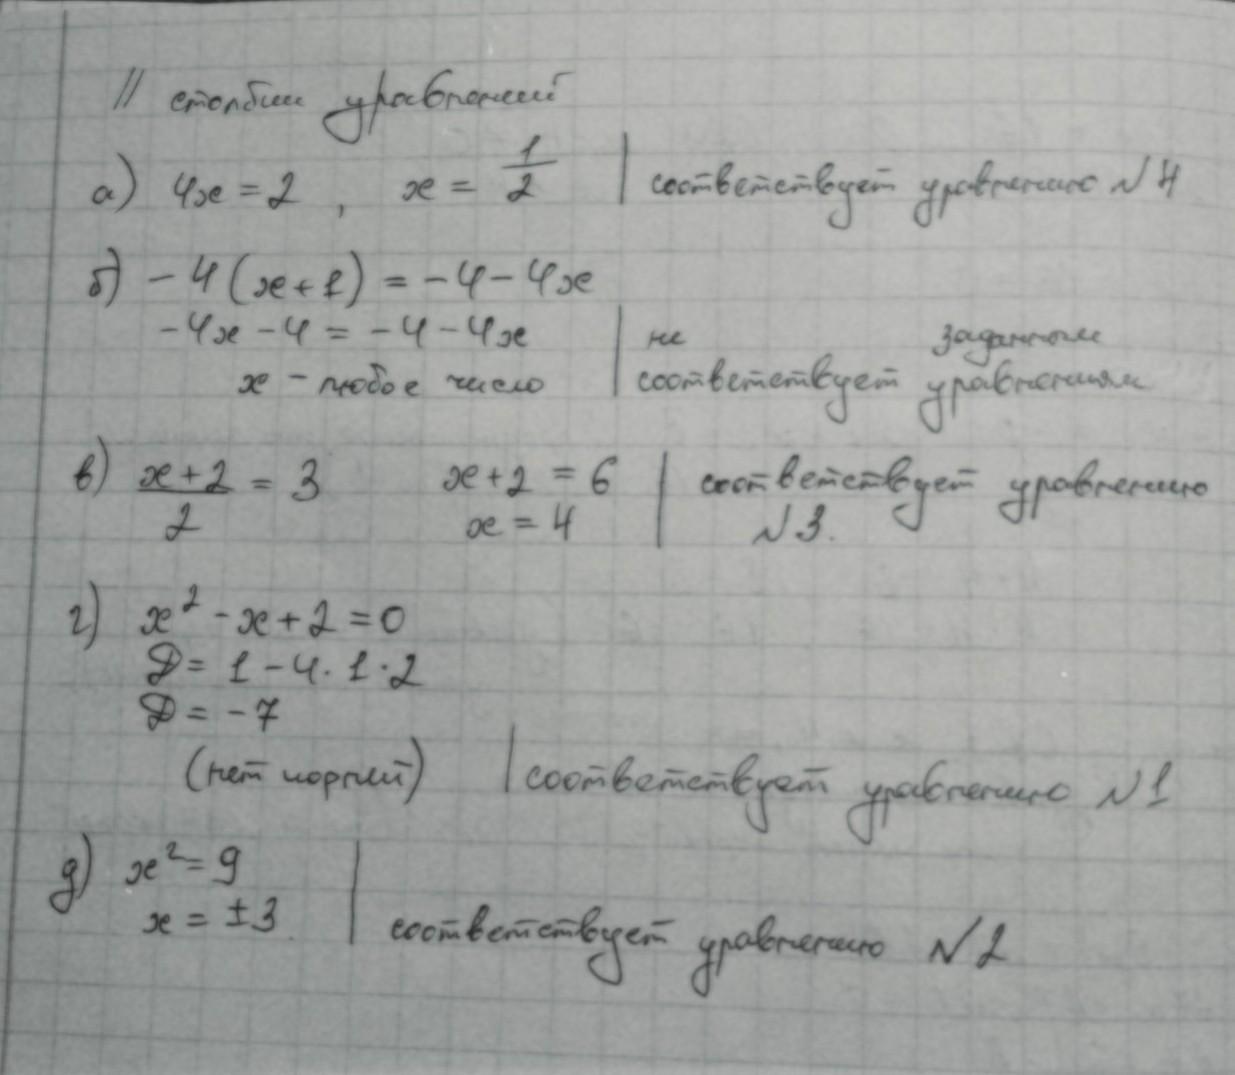 II столбик уравнений
а) 4x = 2 , x = 1/2 | соответствует уравнению №4
б) -4(x+1) = -4-4x
-4x-4 = -4-4x | не заданным
x - любое число | соответствует уравнениям
в) (x+2)/2 = 3 x+2 = 6 | соответствует уравнению
x = 4 | №3.
г) x² - x + 2 = 0
D = 1 - 4·1·2
D = -7
(нет корней) | соответствует уравнению №1
д) x² = 9
x = ±3 | соответствует уравнению №2